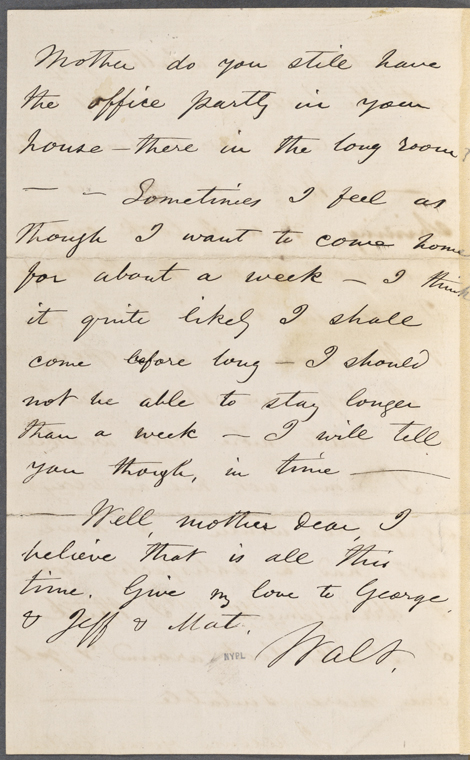 Mother do you still have
the office partly in your
house – there in the long room
— – Sometimes I feel as
though I want to come home
for about a week – I think
it quite likely I shall
come before long – I should
not be able to stay longer
than a week – I will tell
you though, in time —
— Well, mother dear, I
believe that is all this
time. Give my love to George
& Jeff & Mat.
Walt.
NYPL